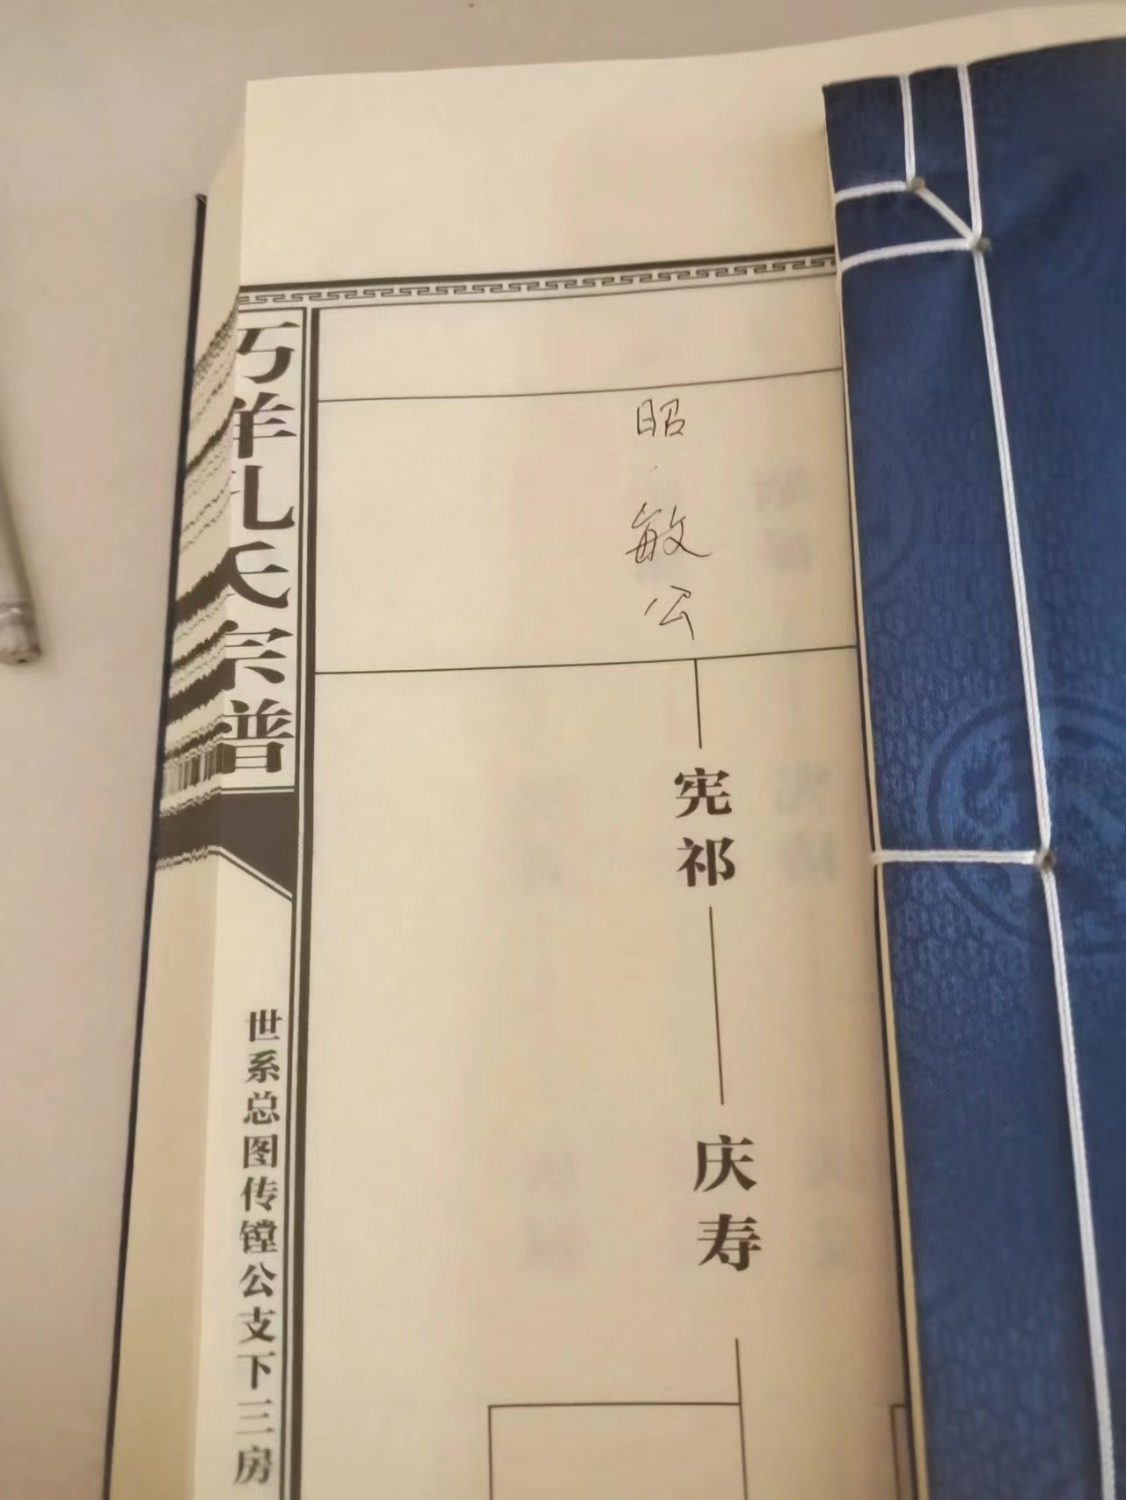 昭敏公
宪祁
庆寿
羊孔氏宗谱
世系总图传镗公支下三房